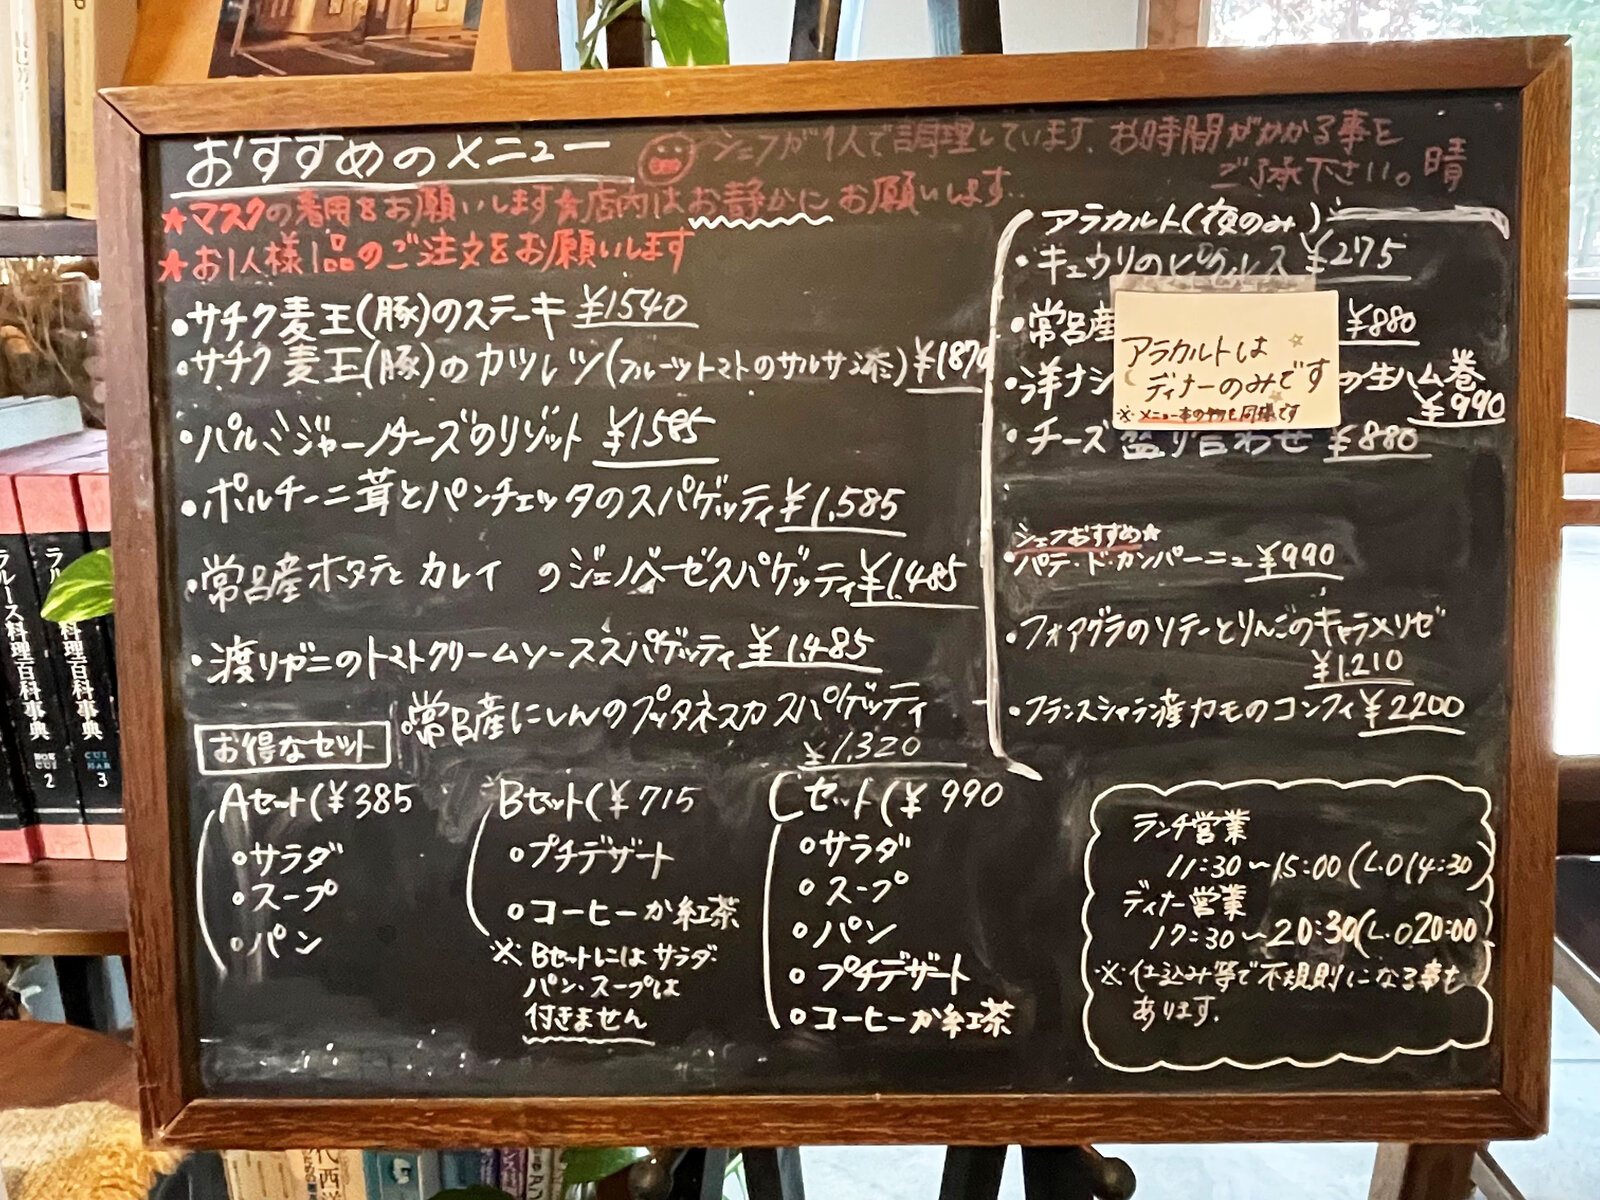 おすすめのメニュー
シェフが1人で調理しています。お時間がかかる事を
ご了承下さい。晴
★マスクの着用をお願いします★店内はお静かにお願いします
★お1人様1品のご注文をお願いします
・サチク麦王(豚)のステーキ ¥1540
・サチク麦王(豚)のカツレツ(フルーツトマトのサルサ添え)¥1870
・パルミジャーノチーズのリゾット ¥1585
・ポルチーニ茸とパンチェッタのスパゲッティ ¥1,585
・常呂産ホタテとカレイ のジェノベーゼスパゲッティ ¥1,485
・渡りガニのトマトクリームソーススパゲッティ ¥1,485
・常呂産にしんのプッタネスカスパゲッティ
¥1,320
お得なセット
Aセット(¥385
・サラダ
・スープ
・パン
Bセット(¥715
・プチデザート
・コーヒーか紅茶
※Bセットにはサラダ・
パン・スープは
付きません
Cセット(¥990
・サラダ
・スープ
・パン
・プチデザート
・コーヒーか紅茶
アラカルト(夜のみ)
・キュウリのピクルス ¥275
・常呂産 ¥880
・洋ナシ の生ハム巻
¥990
・チーズ盛り合わせ ¥880
アラカルトは
ディナーのみです
シェフおすすめ★
・パテ・ド・カンパーニュ ¥990
・フォアグラのソテーとりんごのキャラメリゼ
¥1,210
・フランスシャラン産カモのコンフィ ¥2200
ランチ営業
11:30〜15:00(L.O14:30)
ディナー営業
17:30〜20:30(L.O20:00
※仕込み等で不規則になる事も
あります。
ラルース料理百科事典
2
料理百科事典
3